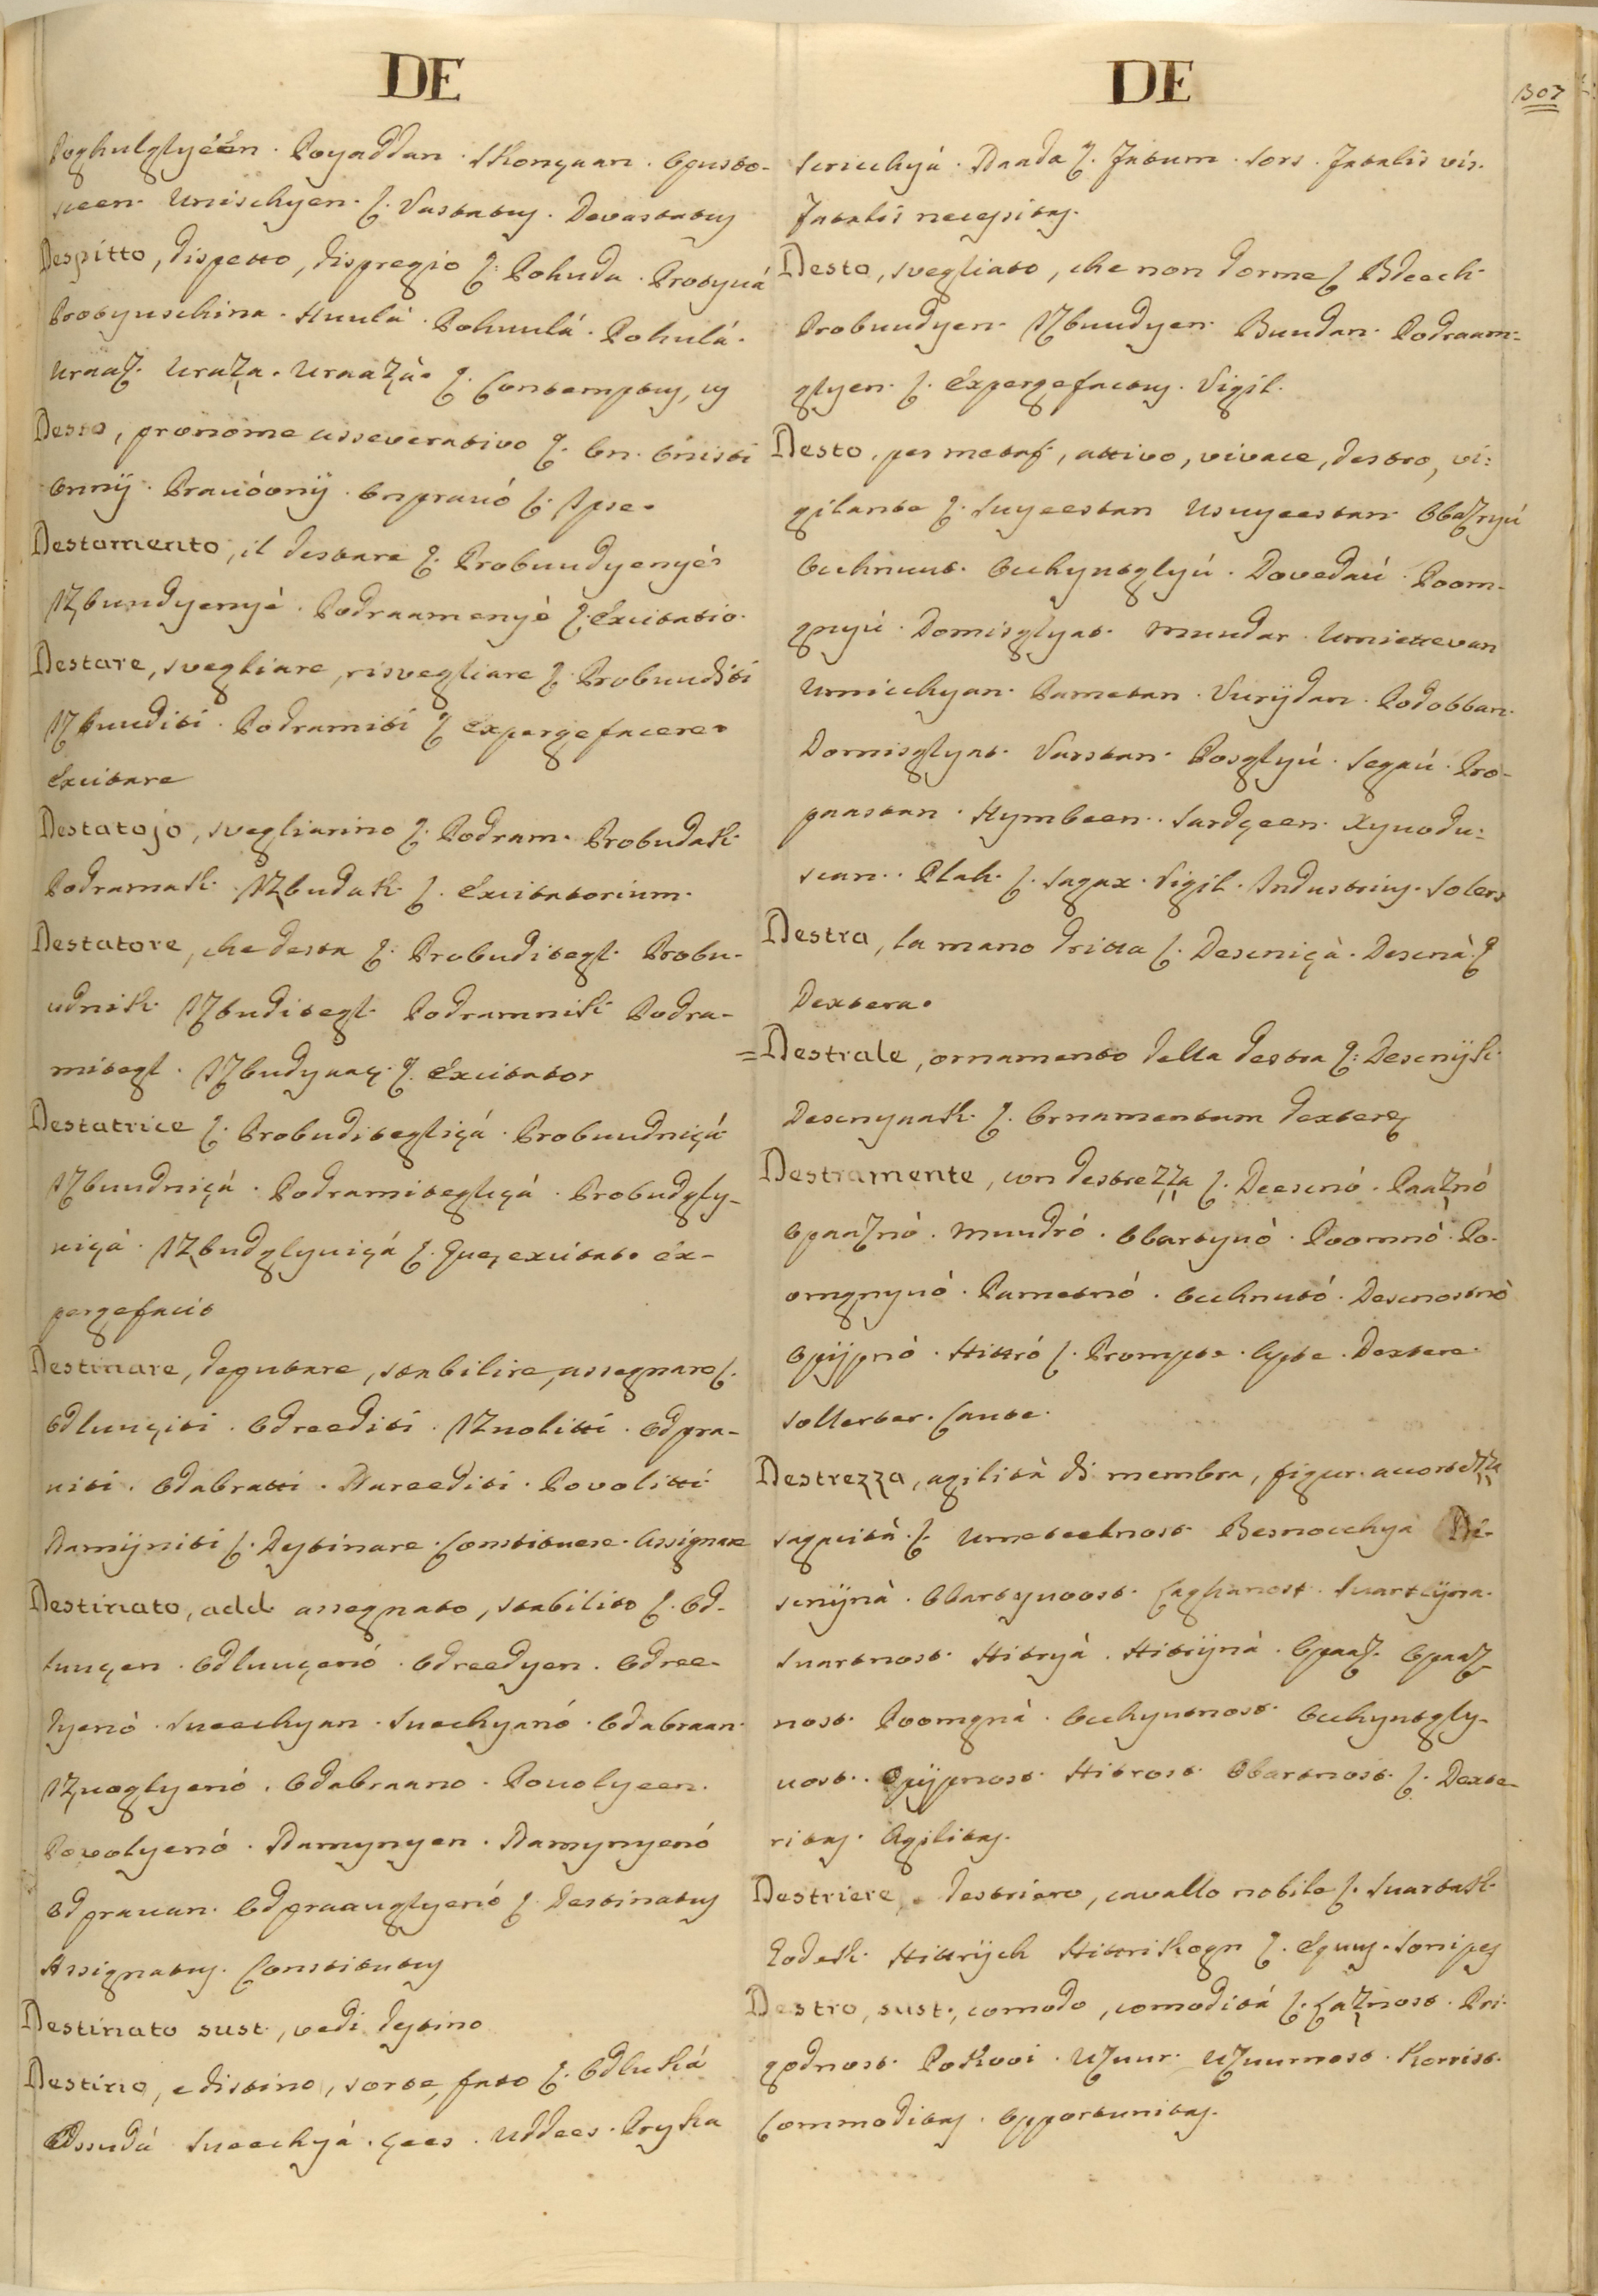 DE
Poghulglyeen. Poyaddan. Skonçaan. Opusto-
sceen. Unischyen. (. Vastatus. Devastatus
Despitto, dispetto, dispregio (. Pohuda. Protyvá
Protyuschina. Huulá. Pohuulá. Pohulá.
Uraaz. Uraza. Uraazà. (. Contemptus, us
Desto, pronome asseverativo (. On. Onisti
Onnÿ. Pravóonÿ. Onpravó (. Ipse.
Destamento, il destare (. Probuudyenyé
Izbuudyenyé. Podraamenyé (. Excitatio.
Destare, svegliare, risvegliare (. Probuuditi
Izbuuditi. Podramiti (. Expergefacere.
Excitare
Destatojo, svegliarino (. Podram. Probudak.
Podramak. Izbudak. (. Excitatorium.
Destatore, che desta (. Probuditegl. Probu-
udnik. Izbuditegl. Podramnik. Podra-
mitegl. Izbudyvaç. (. Excitator
Destatrice (. Probuditegliçá. Probuudniçá.
Izbuudniçá. Podramitegliçá. Probudgly-
viçà. Izbudglyviçá (. Quę excitat. Ex-
pergefacit
Destinare, deputare, stabilire, assegnare (.
Odluuçiti. Odreediti. Izvolitti. Odpra-
viti. Odabratti. Nareediti. Povolitti.
Namÿniti (. Destinare. Constituere. Assignare
Destinato, add. assegnato, stabilito (. Od-
luuçen. Odluuçenó. Odreedyen. Odree-
dyenó. Sueechyan. Suechyanó. Odabraan.
Izvoglyenó. Odabraano. Povolyeen.
Povolyenó. Namynyen. Namynyenó
Odpravan. Odpraauglyenó (. Destinatus
Assignatus. Constitutus
Destinato sust., vedi destino
Destino, e distino, sorte, fato (. Odluká
Odssudá Sueechyá. Çees. Uddees. Pryka
DE
307
Scricchyá. Naada (. Fatum. Sors. Fatalis vis.
Fatalis necessitas.
Desto, svegliato, che non dorme (. Bdeech.
Probuudyen. Izbuudyen. Buudan. Podraam-
glyen. (. Expergefactus. Vigil.
Desto, per metaf., attivo, vivace, destro, vi-
gilante (. Suyeestan Usuyeestan. Obaznyú
Occhnuut. Occhyutglyú. Dovedaú. Poom-
gnyú. Domisglyat. Muudar. Umietevan
Umicchyan. Pametan. Vurÿdan. Podobban.
Domisglyat. Varstan. Posglyú. Segaú. Pro-
paastan. Hymbeen. Sardçeen. Xyuodu-
scan. Plah. (. Sagax. Vigil. Industrius. Solers
Destra, la mano dritta (. Desniçà. Desnà. (
Dextera.
=Destrale, ornamento della destra (. Desnÿk.
Desnyaak. (. Ornamentum dexterę
Destramente, con destrezza (. Deesnó. Paaznó
Opaaznó. Muudró. Obartyuó. Poomnó. Po-
omgnyuó. Pametnó. Occhnutó. Desnostnó
Opÿpnó. Hittró (. Prompte. Apte. Dextere.
Sollerter. Caute.
Destrezza, agilità di membra, figur. accortezza
sagacità. (. Umeteelnost. Besnocchyá De-
snÿná. Obartyuoost. Laghanost. Suartlÿna.
Suartnost. Hitryá. Hitrÿná. Opaaz. Opaaz-
nost. Poomgna. Occhyutnost. Occhyutgly-
uost. Opÿpnost. Hitrost. Obartnost. (. Dexte-
ritas. Agilitas.
Destriere, destriero, cavallo nobile (. Suartak.
Hittrÿch Hittrikogn (. Equus. Sonipes
Destro, sust., comodo, comodità (. Laznost. Pri-
godnost. Pokooi. Uzuur. Uzuurnost. Korrist.
Commoditas. Opportunitas.